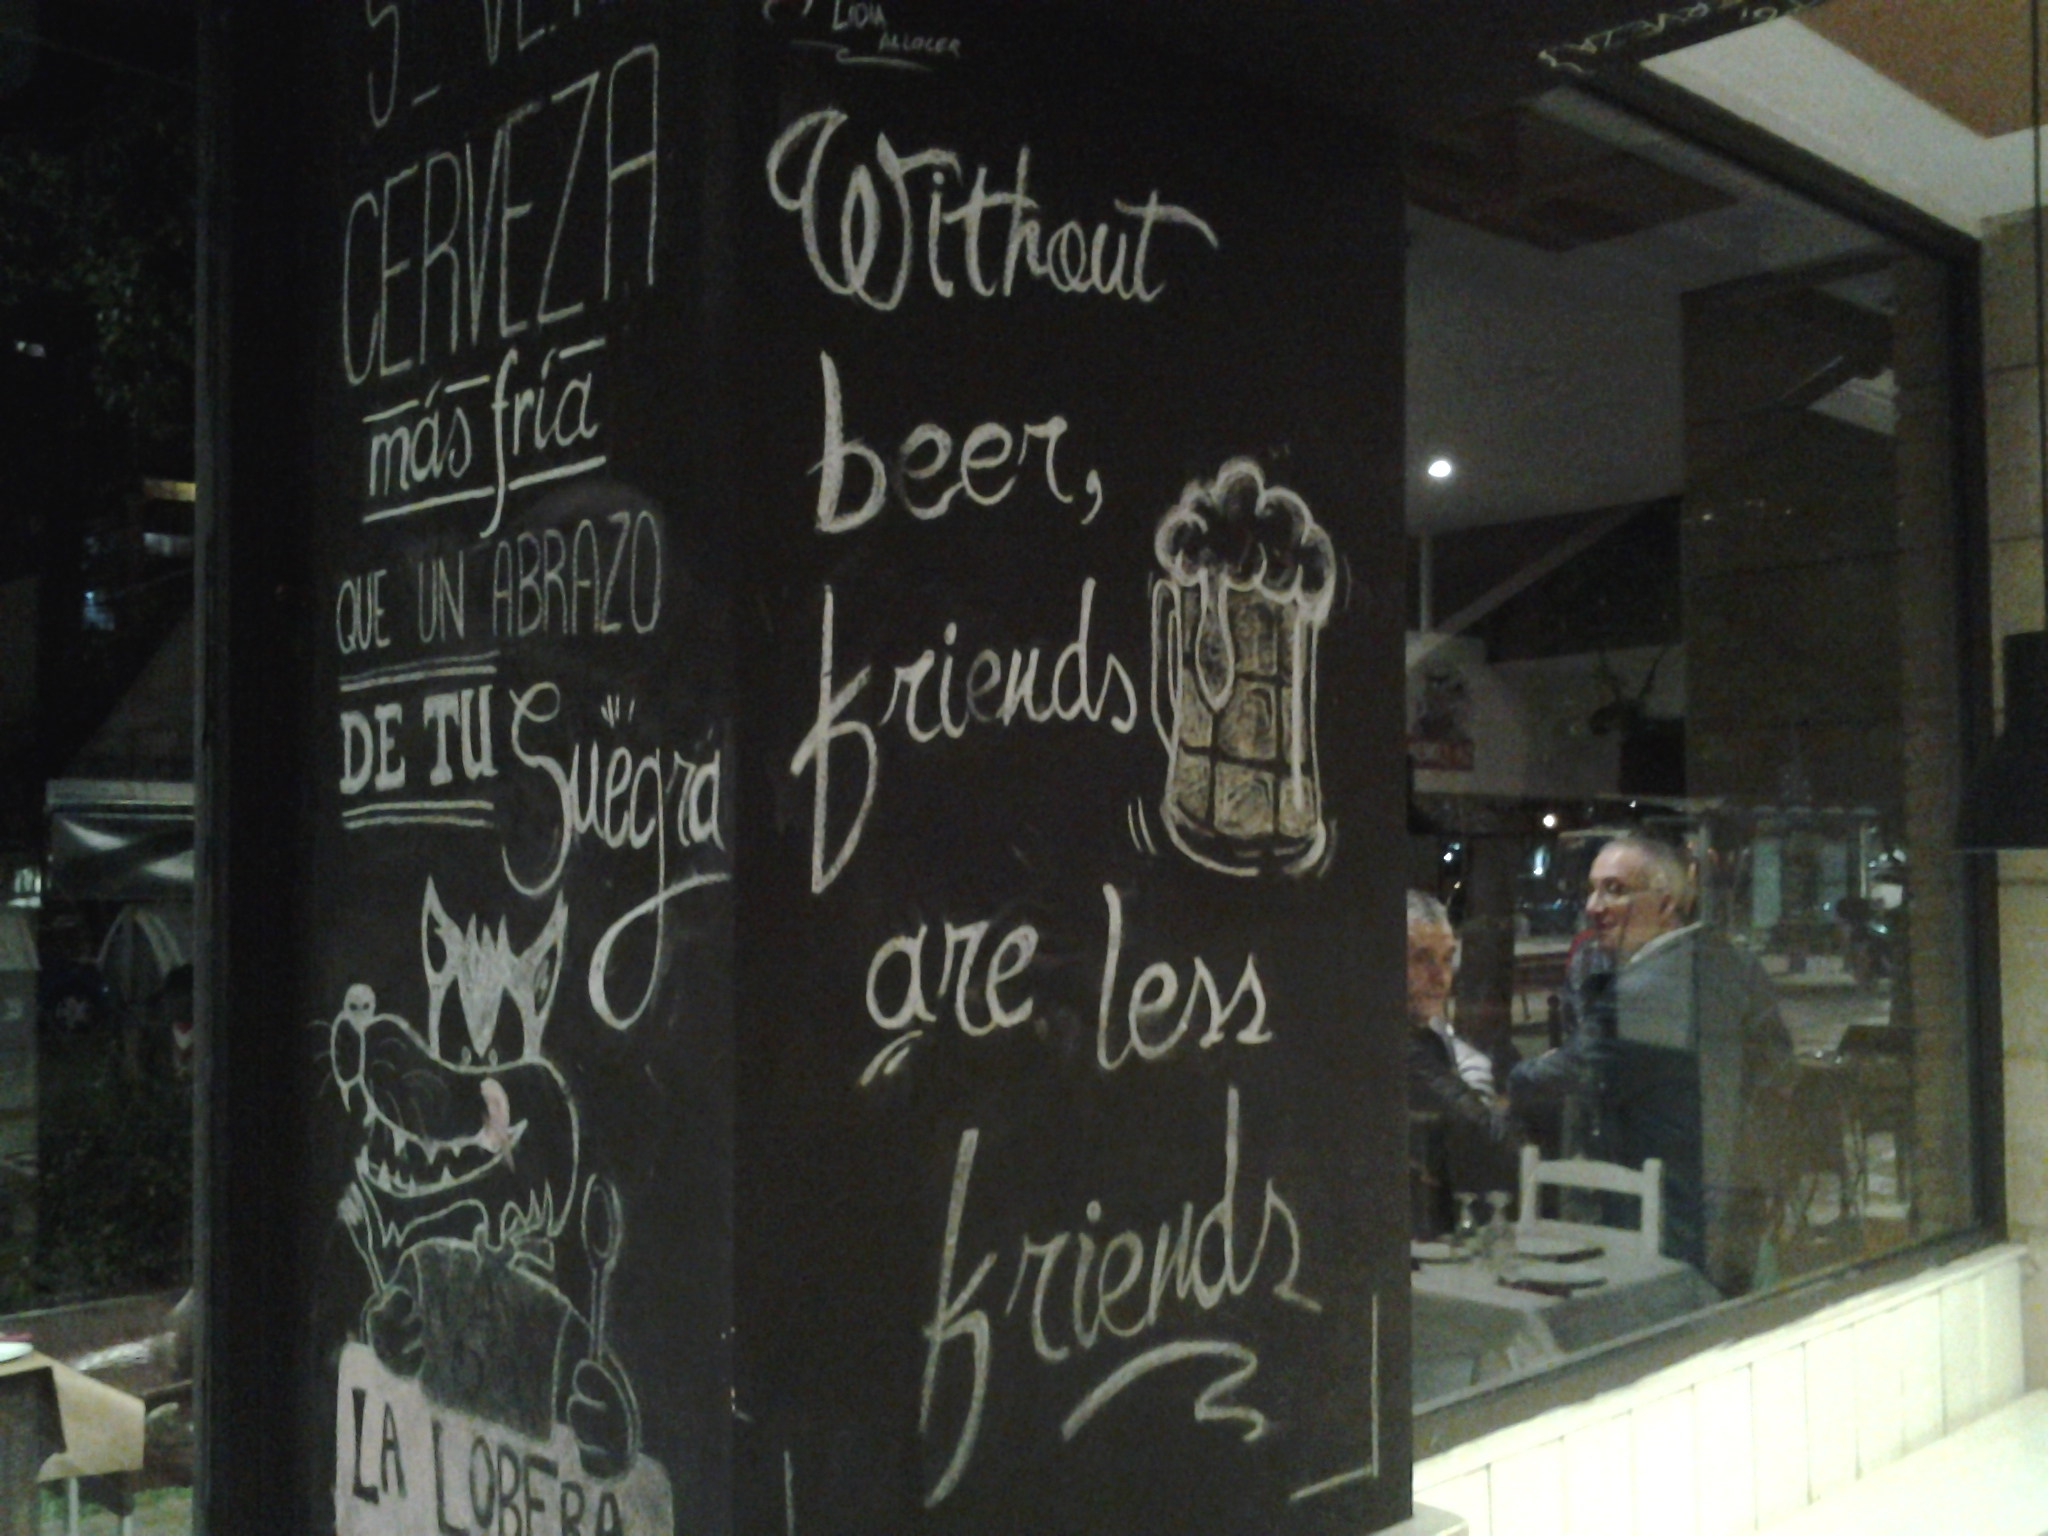 CERVEZA
más fría
QUE UN ABRAZO
DE TU Suegra
LA LOBERA
LIDIA
Without
beer,
friends
are less
friends